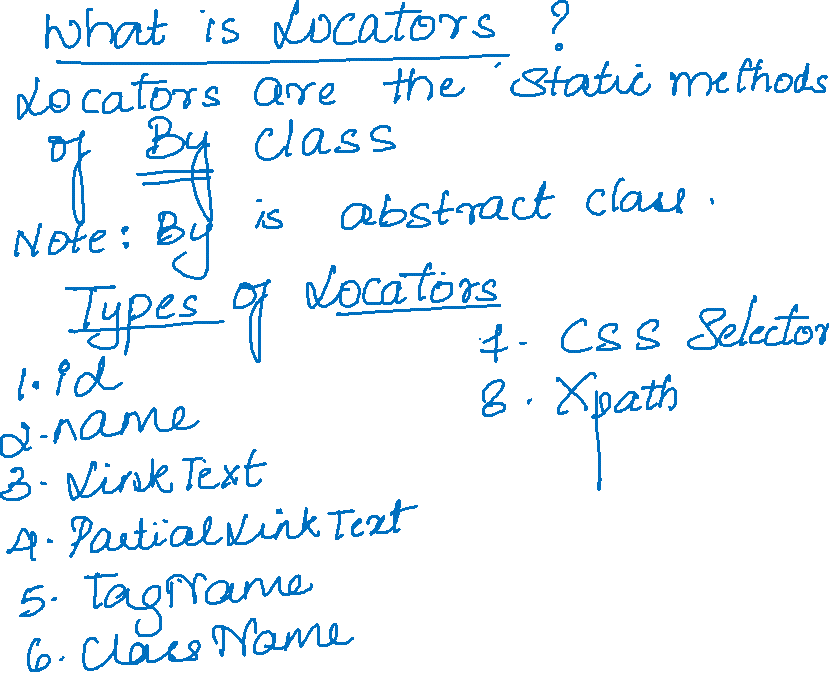 What is Locators ?
Locators are the static methods
of By class
Note: By is abstract class.
Types of Locators
1. id
2. name
3. Link Text
4. Partial Link Text
5. TagName
6. Class Name
7. CSS Selector
8. Xpath